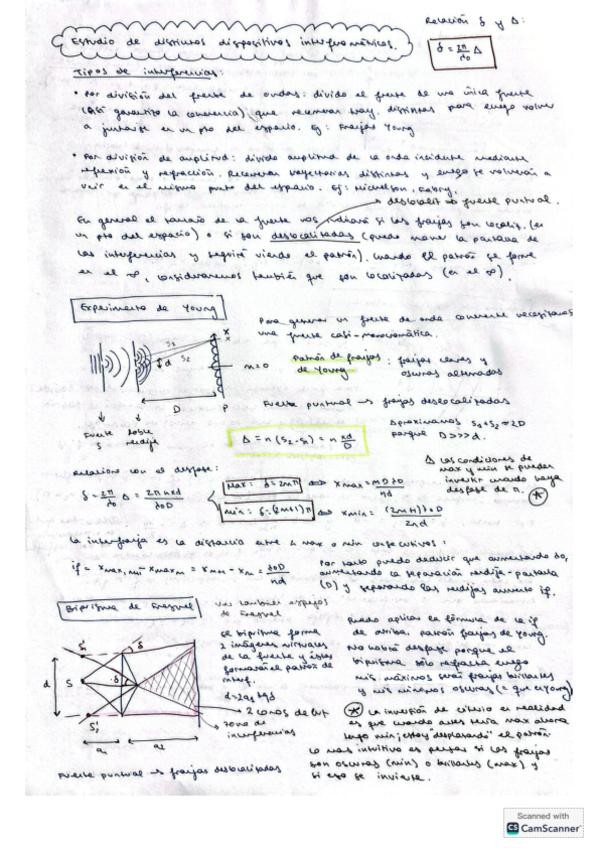 Relación δ y Δ:
δ = 2π/λo Δ
Estudio de distintos dispositivos interferométricos.
Tipos de interferencias:
• Por división del frente de ondas: divido el frente de una única fuente
(así garantizo la coherencia) que recorrerán tray. distintas para luego volver
a juntarse en un pto del espacio. Eg: Franjas Young
• Por división de amplitud: divido amplitud de la onda incidente mediante
reflexión y refracción. Recorrerán trayectorias distintas y luego se volverán a
unir en el mismo punto del espacio. Ej: Michelson, Fabry.
deslocaliz → fuente puntual.
En general el tamaño de la fuente nos indicará si las franjas son localiz. (en
un pto del espacio) o si son deslocalizadas (puedo mover la pantalla de
las interferencias y seguiré viendo el patrón). Cuando el patrón se forme
en el ∞, consideraremos también que son localizadas (en el ∞).
Experimento de Young
Para generar un frente de onda coherente necesitamos
una fuente casi-monocromática.
Patrón de franjas de Young: franjas claras y
oscuras alternadas
S1
S2
d
x
m=0
D
P
Fuente S
Doble rendija
Fuente puntual → franjas deslocalizadas
Δ = n (S2-S1) = n xd/D
Aproximamos S1+S2 ≈ 2D
porque D>>>d.
Relaciono con el desfase:
δ = 2π/λo Δ = 2π n x d/λo D
Max: δ=2mπ ⇒ xmax = mDλo/nd
Min: δ=(2m+1)π ⇒ xmin = (2m+1)λoD/2nd
Δ Las condiciones de
max y min se pueden
invertir cuando haya
desfase de π. *
La interfranja es la distancia entre 2 max o min consecutivos:
if = xmax,m+1 - xmax,m = xm+1 - xm = λoD/nd
Por tanto puedo deducir que aumentando λo,
aumentando la separación rendija-pantalla
(D) y separando las rendijas aumento if.
Biprisma de Fresnel
Ver también espejos
de Fresnel
S1'
S
S2'
d
δ
a1
a2
El biprisma forma
2 imágenes virtuales
de la fuente y éstas
formarán el patrón de
interf.
2 conos de luz
zona de
interferencias
Puedo aplicar la fórmula de la if
de arriba, patrón franjas de Young.
No habrá desfase porque el
biprisma sólo refracta luego
mis máximos serán franjas brillantes
y mis mínimos oscuras (= que en Young)
* La inversión de criterio en realidad
es que cuando antes tenía max ahora
tengo min; estoy "desplazando" el patrón
Lo más intuitivo es pensar si las franjas
son oscuras (min) o brillantes (max) y
si eso se invierte.
Fuente puntual → franjas deslocalizadas
Scanned with
CS CamScanner